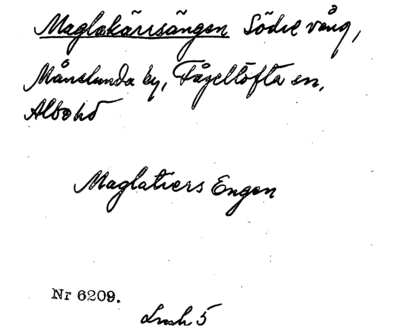 Maglakärrsängen Södre vång,
Månslunda by, Fågeltofta sn,
Albo hd
Maglakiers Engen
Nr 6209.
5